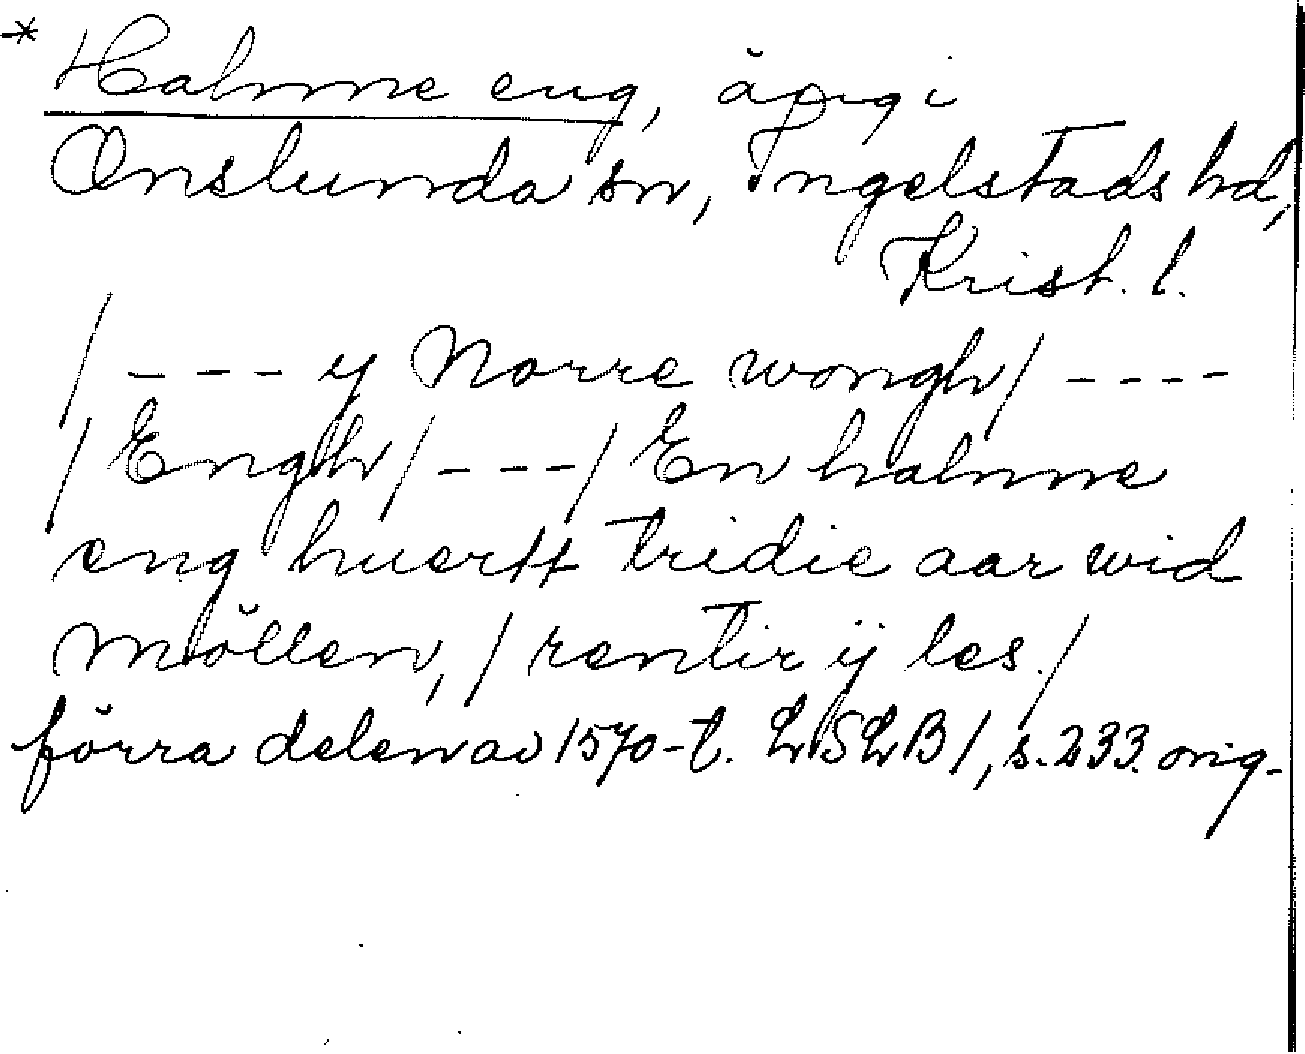 * Halmme eng, äng i
Onslunda sn, Ingelstads hd,
Krist. l.
/ - - - y Norre wongh / - - - -
/ Engh / - - - / En halmme
eng huertt tridie aar wid
möllen, / rentir ij les. /
förra delen av 1570-t. LSLB 1, s. 233. orig.